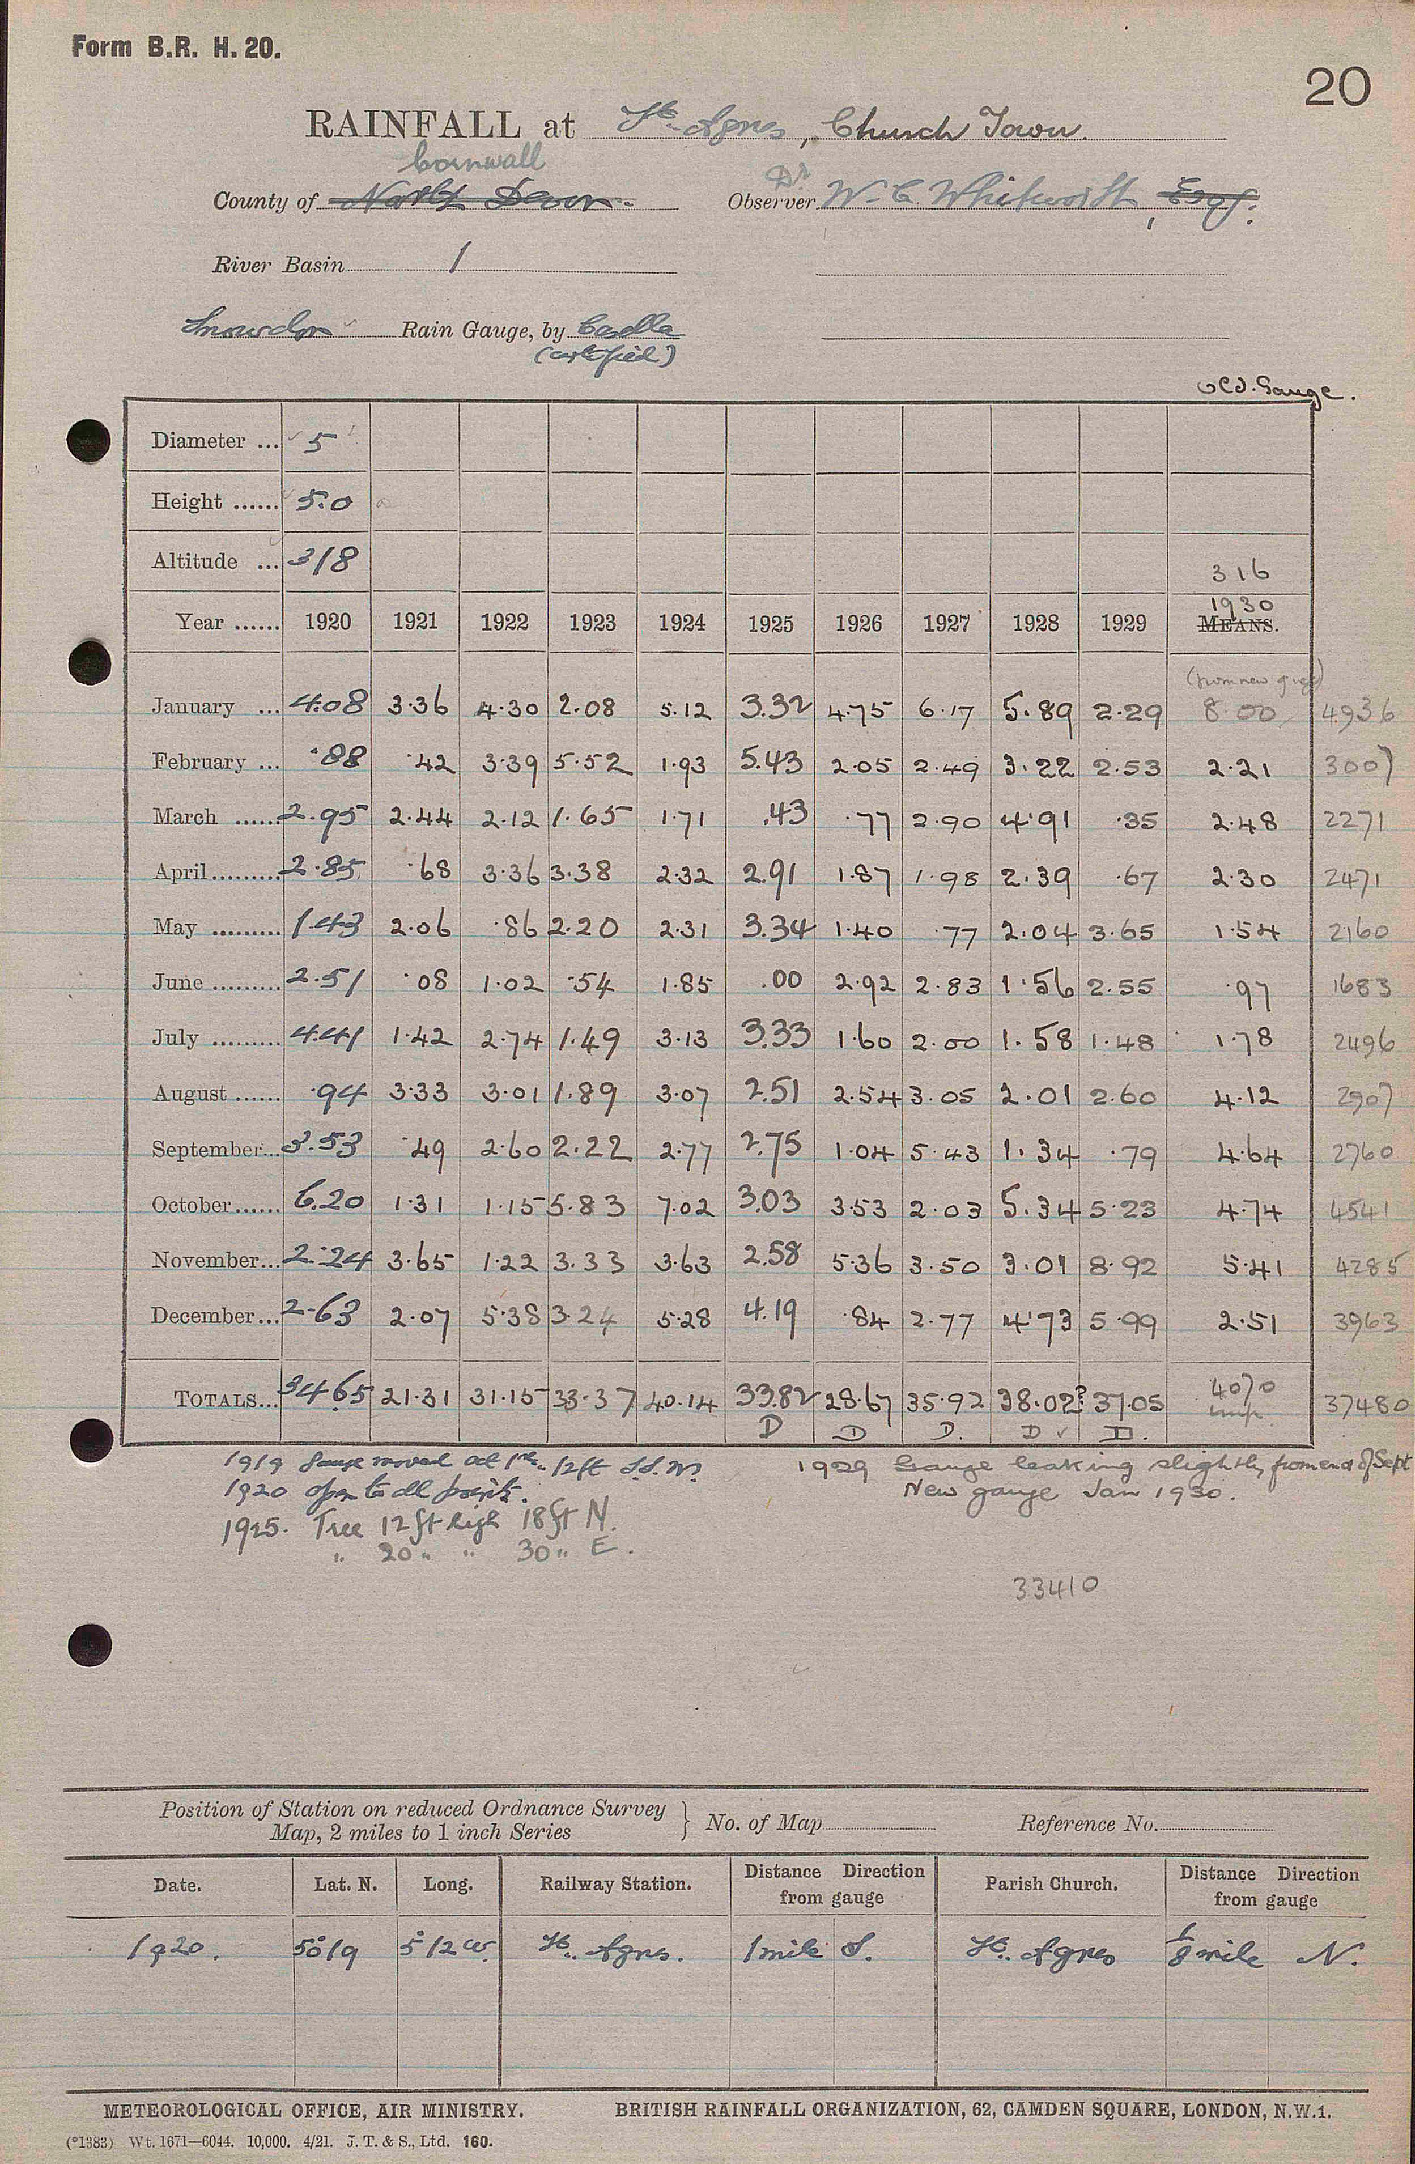 Form B.R. H. 20.
20
RAINFALL at St. Agnes, Church Town.
Cornwall
County of North Devon. Observer Dr W. C. Whitworth, Esqr.
River Basin 1
Snowdon Rain Gauge, by Casella
(certified)
Old Gauge.
Diameter ... 5
Height ...... 5.0
Altitude ... 318 316
1930
Year ...... 1920 1921 1922 1923 1924 1925 1926 1927 1928 1929 MEANS.
(from new gauge)
January ... 4.08 3.36 4.30 2.08 5.12 3.32 4.75 6.17 5.89 2.29 8.00 4936
February ... .88 .42 3.39 5.52 1.93 5.43 2.05 2.49 3.22 2.53 2.21 3007
March ...... 2.95 2.44 2.12 1.65 1.71 .43 .77 2.90 4.91 .35 2.48 2271
April ......... 2.85 .68 3.36 3.38 2.32 2.91 1.87 1.98 2.39 .67 2.30 2471
May ......... 1.43 2.06 .86 2.20 2.31 3.34 1.40 .77 2.04 3.65 1.54 2160
June ......... 2.51 .08 1.02 .54 1.85 .00 2.92 2.83 1.56 2.55 .97 1683
July ......... 4.41 1.42 2.74 1.49 3.13 3.33 1.60 2.00 1.58 1.48 1.78 2496
August ...... .94 3.33 3.01 1.89 3.07 2.51 2.54 3.05 2.01 2.60 4.12 2907
September... 3.53 .49 2.60 2.22 2.77 2.75 1.04 5.43 1.34 .79 4.64 2760
October...... 6.20 1.31 1.15 5.83 7.02 3.03 3.53 2.03 5.34 5.23 4.74 4541
November... 2.24 3.65 1.22 3.33 3.63 2.58 5.36 3.50 3.01 8.92 5.41 4285
December... 2.63 2.07 5.38 3.24 5.28 4.19 .84 2.77 4.73 5.99 2.51 3963
TOTALS... 34.65 21.31 31.15 33.37 40.14 33.82 28.67 35.92 38.02? 37.05 4070 37480
D D D. D ✓ D.
1919 Gauge moved 12ft
1920 open to all points.
1925. Tree 12 ft high 18 ft N.
" 20 " " 30 " E.
1929 Gauge leaking slightly from end of Sept
New gauge Jan 1930.
33410
Position of Station on reduced Ordnance Survey
Map, 2 miles to 1 inch Series } No. of Map Reference No.
Date. Lat. N. Long. Railway Station. Distance Direction from gauge Parish Church. Distance Direction from gauge
1920. 50°19 5°12 W. St. Agnes. 1 mile S. St. Agnes 1/8 mile N.
METEOROLOGICAL OFFICE, AIR MINISTRY. BRITISH RAINFALL ORGANIZATION, 62, CAMDEN SQUARE, LONDON, N.W.1.
(*1383) Wt. 1671—6044. 10,000. 4/21. J. T. & S., Ltd. 160.